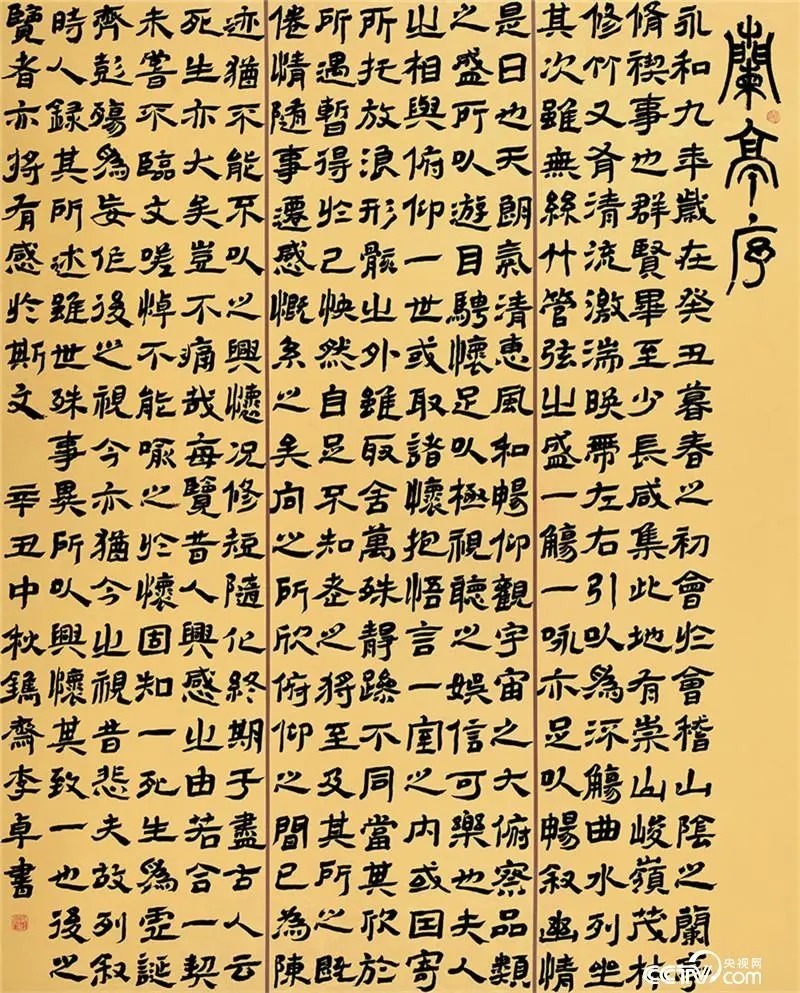 蘭亭序
永和九年歲在癸丑暮春之初會於會稽山陰之蘭亭
脩禊事也群賢畢至少長咸集此地有崇山峻嶺茂林
修竹又有清流激湍映帶左右引以爲流觴曲水列坐
其次雖無絲竹管弦之盛一觴一詠亦足以暢叙幽情
是日也天朗氣清惠風和暢仰觀宇宙之大俯察品類
之盛所以遊目騁懷足以極視聽之娛信可樂也夫人
之相與俯仰一世或取諸懷抱悟言一室之內或因寄
所托放浪形骸之外雖取舍萬殊靜躁不同當其欣於
所遇暫得於己怏然自足不知老之將至及其所之既
倦情隨事遷感慨系之矣向之所欣俯仰之間已為陳
迹猶不能不以之興懷况修短隨化終期于盡古人云
死生亦大矣豈不痛哉每覽昔人興感之由若合一契
未嘗不臨文嗟悼不能喻之於懷固知一死生爲虛誕
齊彭殤爲妄作後之視今亦猶今之視昔悲夫故列叙
時人録其所述雖世殊事異所以興懷其致一也後之
覽者亦將有感於斯文 辛丑中秋鐫齋李卓書
央视网
CCTV.com